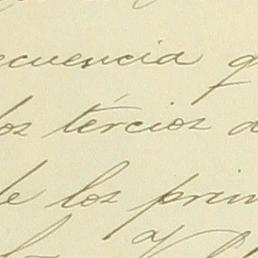 ecuencia q
los tércios d
de los prim